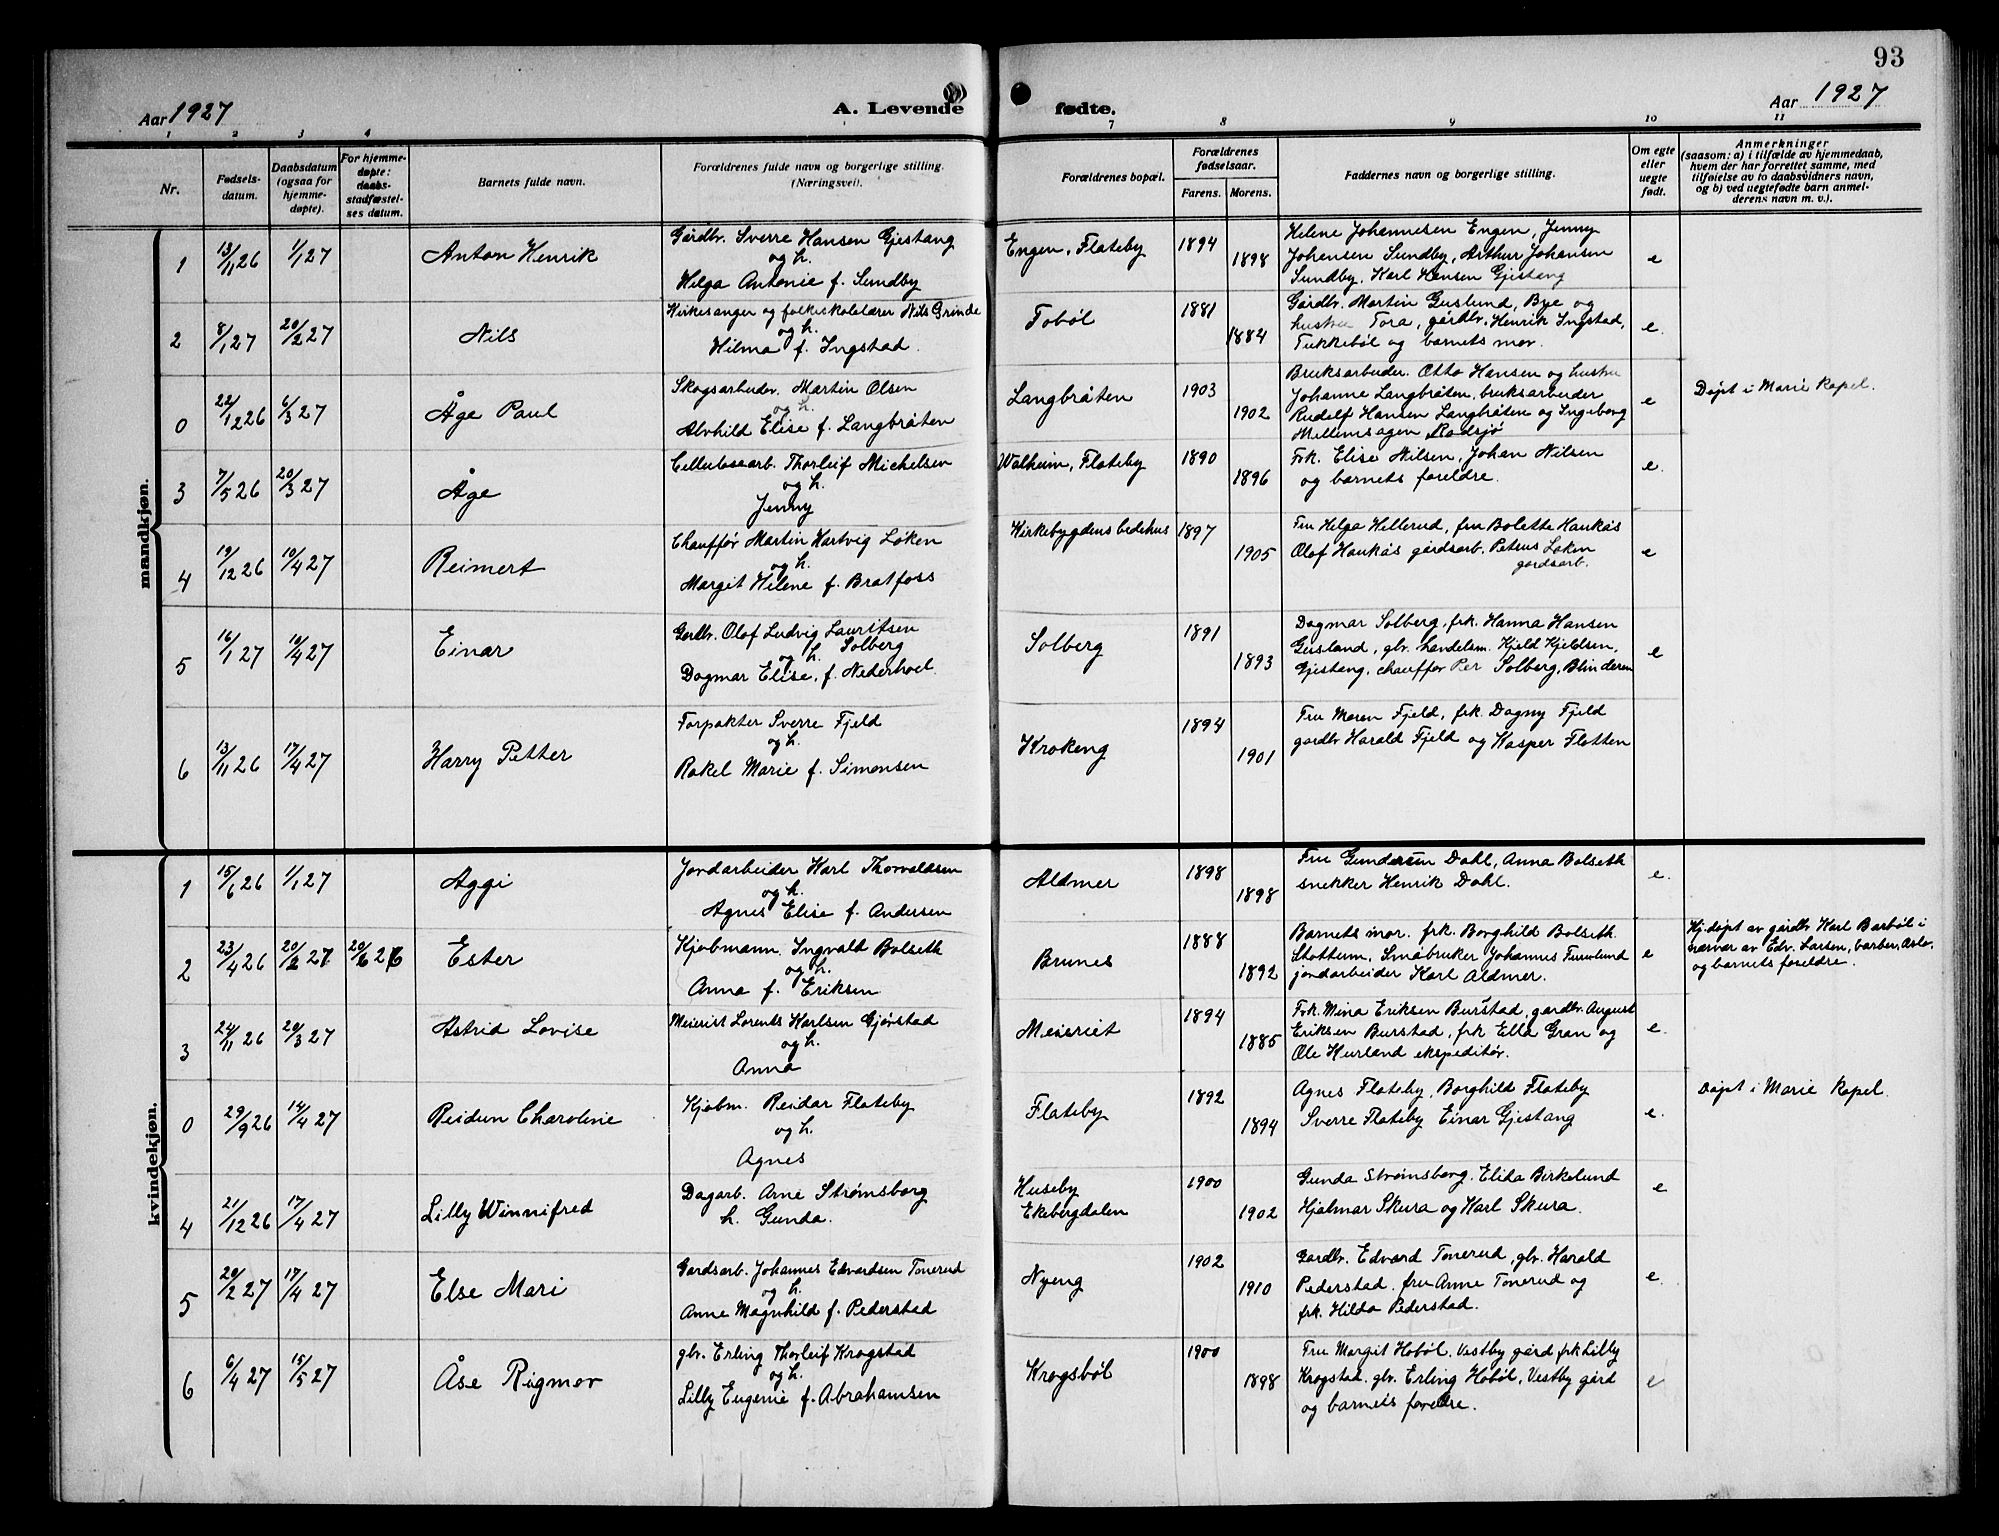 93
Aar 1927
A. Levende fødte.
Aar 1927
1 2 3 4 7 8 9 10 11
Nr.
Fødsels-
datum.
Daabsdatum
(ogsaa for
hjemme-
døpte).
For hjemme-
døpte:
daabs-
stadfæstel-
ses datum.
Barnets fulde navn.
Forældrenes fulde navn og borgerlige stilling.
(Næringsvei).
Forældrenes bopæl.
Forældrenes
fødselsaar.
Farens. Morens.
Faddernes navn og borgerlige stilling.
Om egte
eller
uegte
født.
Anmerkninger
(saasom: a) i tilfælde av hjemmedaab,
hvem der har forrettet samme, med
tilføielse av to daabsvidners navn,
og b) ved uegtefødte barn anmel-
derens navn m. v.).
mandkjøn.
1 13/11 26 1/1 27 Anton Henrik
Gårdbr. Sverre Hansen Gjestang
og h.
Helga Antonie f. Sundby
Engen, Flateby 1894 1898
Helene Johannesen Engen, Jenny
Johansen Sundby, Arthur Johansen
Sundby, Karl Hansen Gjestang
e
2 8/1 27 20/2 27 Nils
Kirkesanger og folkeskolelærer Nils Grinde
og h.
Hilma f. Ingstad.
Tobøl 1881 1884
Gårdbr. Martin Guslund, Bye og
hustru Tora, gårdbr. Henrik Ingstad,
Tukkebøl og barnets mor.
e.
0 22/12 26 6/3 27 Åge Paul
Skogsarbeider. Martin Olsen
og h.
Alvhild Elise f. Langbråten
Langbråten 1903 1902
Bruksarbeider. Otto Hansen og hustru
Johanne Langbråten, bruksarbeider
Rudolf Hansen Langbråten og Ingeborg
Mellemsagen Rådsjø
e
Døpt i Marie Kapel.
3 7/5 26 20/3 27 Åge
Cellulosearb. Thorleif Michelsen
og h.
Jenny
Walheim, Flateby 1890 1896
Frk. Elise Nilsen, Johan Nilsen
og barnets foreldre.
e.
4 19/12 26 10/4 27 Reimert
Chauffør Martin Hartvig Løken
og h.
Margit Helene f. Bratfoss
Kirkebygdens bedehus 1897 1905
Fru Helga Hillerud, fru Bolette Haukås
Olof Haukås gårdsarb. Petrus Løken
gårdsarb.
e
5 16/1 27 10/4 27 Einar
Gårdbr. Olof Ludvig Lauritsen
Solberg
og h.
Dagmar Elise, f. Nederhoel.
Solberg 1891 1893
Dagmar Solberg, frk. Hanna Hansen
Gusland, gbr. handelsm. Kjeld Kjeldsen,
Gjestang, chauffør Per Solberg, Blinderen
e
6 13/11 26 17/4 27 Harry Petter
Forpakter Sverre Fjeld
og h.
Rakel Marie f. Simensen
Krokeng 1894 1901
Fru Maren Fjeld, frk. Dagny Fjeld
gardbr Harald Fjeld og Kasper Flotten
kvindekjøn.
1 15/6 26 1/1 27 Aggi
Jordarbeider Karl Thorvaldsen
og h.
Agnes Elise f. Andersen
Aldmer 1898 1898
Fru Gundersen Dahl, Anna Bolseth
snekker Henrik Dahl.
e.
2 23/4 26 20/2 27 20/6 26 Ester
Kjøbmann. Ingvald Bolseth
og h.
Anna f. Eriksen
Brunes 1888 1892
Barnets mor. frk. Borghild Bolseth.
Stottum, Småbruker Johannes Furulund
jordarbeider Karl Aldmer.
e
Hj.døpt av gårdbr Karl Barbøl i
nærvær av Edv. Larsen, barber, Oslo,
og barnets foreldre.
3 24/11 26 20/3 27 Astrid Lovise
Meierist Lorents Karlsen Gjørstad
og h.
Anna
Meieriet 1894 1885
Frk. Mina Eriksen Burstad, gardbr. August
Eriksen Burstad, frk Ella Gran og
Ole Hurland ekspeditør.
e.
0 29/9 26 14/4 27 Reidun Charoline
Kjøbm. Reidar Flateby
og h.
Agnes
Flateby 1892 1894
Agnes Flateby, Borghild Flateby
Sverre Flateby Einar Gjestang
e.
Døpt i Marie Kapel.
4 21/12 26 17/4 27 Lilly Winnifred
Dagarb. Arne Strømsborg
h. Gunda.
Huseby
Ekebergdalen 1900 1902
Gunda Strømsborg. Elida Birkelund
Hjalmar Skura og Karl Skura.
e
5 20/2 27 17/4 27 Else Mari
Gardsarb. Johannes Edvardsen Tonerud
og h.
Anne Magnhild f. Pederstad
Nyeng 1902 1910
Gardbr. Edvard Tonerud, gbr. Harald
Pederstad. fru Anne Tonerud og
frk. Hilda Pederstad.
e.
6 6/4 27 15/5 27 Åse Rigmor
gbr. Erling Thorleif Krogstad
og h.
Lilly Eugenie f. Abrahamsen
Krogsbøl 1900 1898
Fru Margit Hobøl, Vestby gård frk Lilly
Krogstad. gbr. Erling Hobøl, Vestby gård
og barnets foreldre.
e